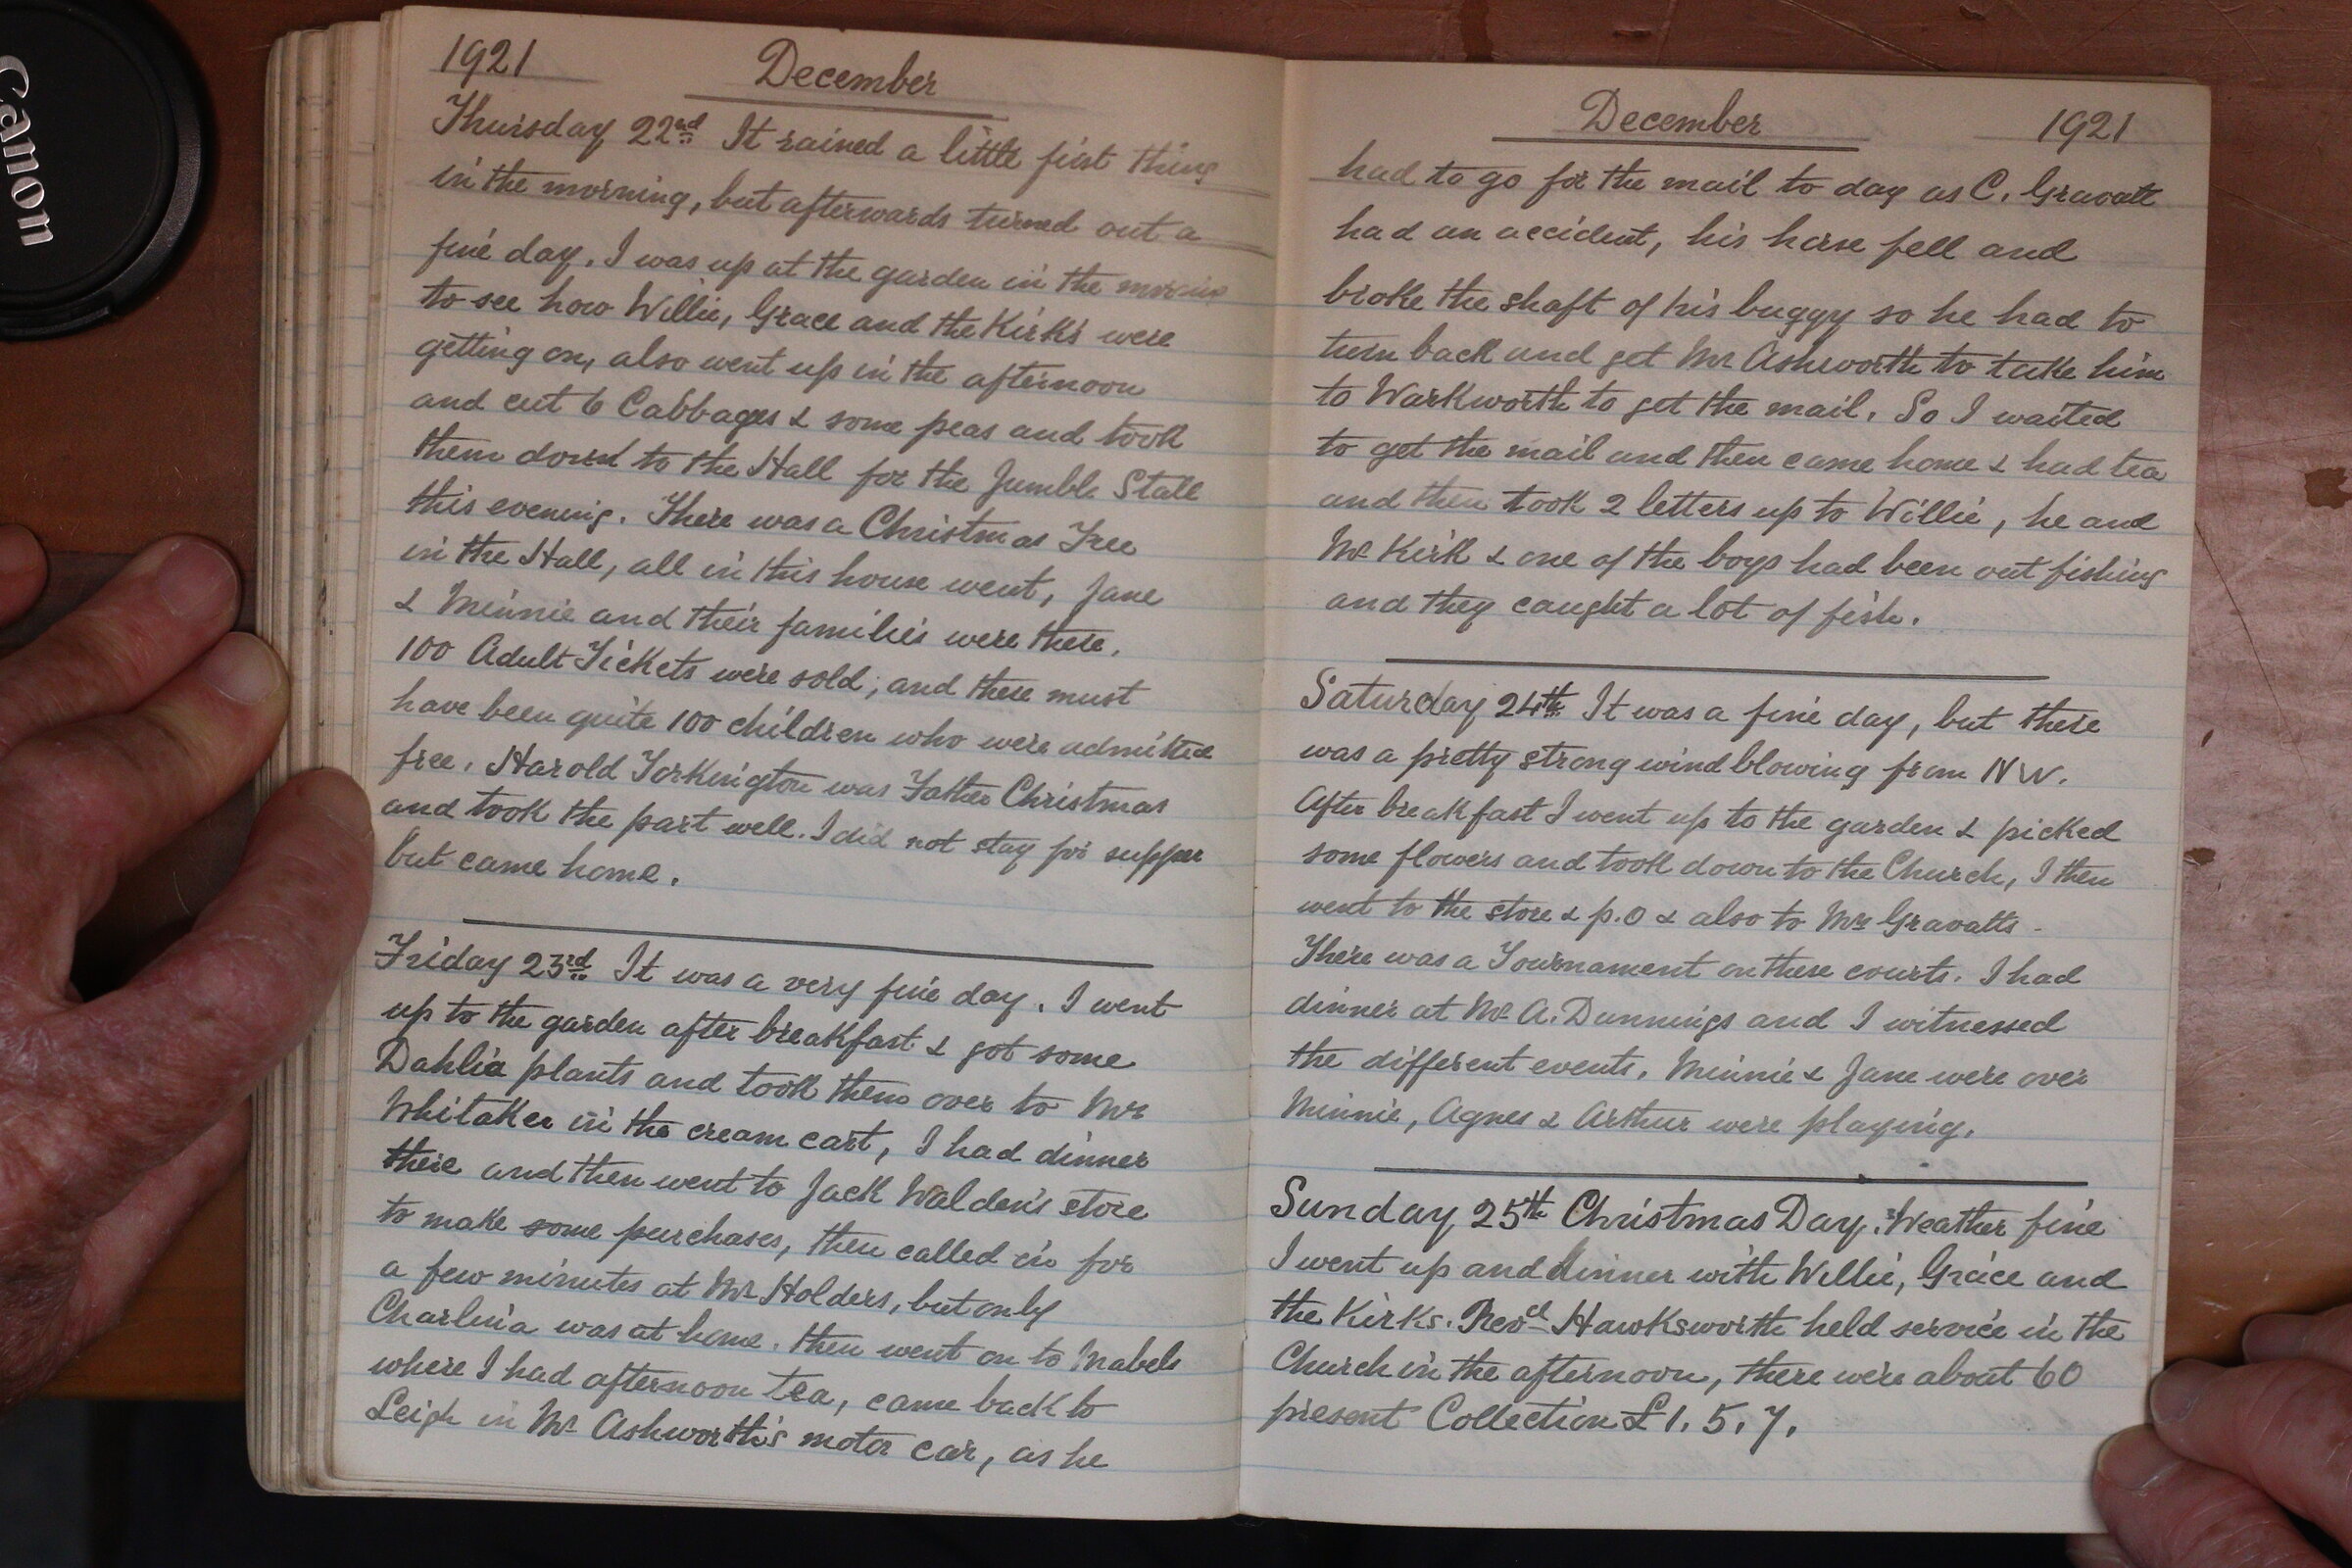 Canon
1921 December
Thursday 22nd It rained a little first thing
in the morning, but afterwards turned out a
fine day. I was up at the garden in the morning
to see how Willie, Grace and the Kirks were
getting on, also went up in the afternoon
and cut 6 Cabbages & some peas and took
them down to the Hall for the Jumble Stall
this evening. There was a Christmas Tree
in the Hall, all in this house went, Jane
& Minnie and their families were there.
100 Adult Tickets were sold, and there must
have been quite 100 children who were admitted
free. Harold Torkington was Father Christmas
and took the part well. I did not stay for supper
but came home.
Friday 23rd It was a very fine day. I went
up to the garden after breakfast & got some
Dahlia plants and took them over to Mrs
Whitaker in the cream cart, I had dinner
there and then went to Jack Walden's store
to make some purchases, then called in for
a few minutes at Mr Holders, but only
Charlina was at home. then went on to Mabels
where I had afternoon tea, came back to
Leigh in Mr Ashworth's motor car, as he
December 1921
had to go for the mail to day as C. Gravatt
had an accident, his horse fell and
broke the shaft of his buggy so he had to
turn back and get Mr Ashworth to take him
to Warkworth to get the mail. So I waited
to get the mail and then came home & had tea
and then took 2 letters up to Willie, he and
Mr Kirk & one of the boys had been out fishing
and they caught a lot of fish.
Saturday 24th It was a fine day, but there
was a pretty strong wind blowing from NW.
After breakfast I went up to the garden & picked
some flowers and took down to the Church, I then
went to the store & p.o & also to Mrs Gravatts -
There was a Tournament on these courts. I had
dinner at Mr A. Dunnings and I witnessed
the different events. Minnie & Jane were over
Minnie, Agnes & Arthur were playing.
Sunday 25th Christmas Day. Weather fine
I went up and dinner with Willie, Grace and
the Kirks. Revd Hawksworth held service in the
Church in the afternoon, there were about 60
present Collection £1. 5. 7.